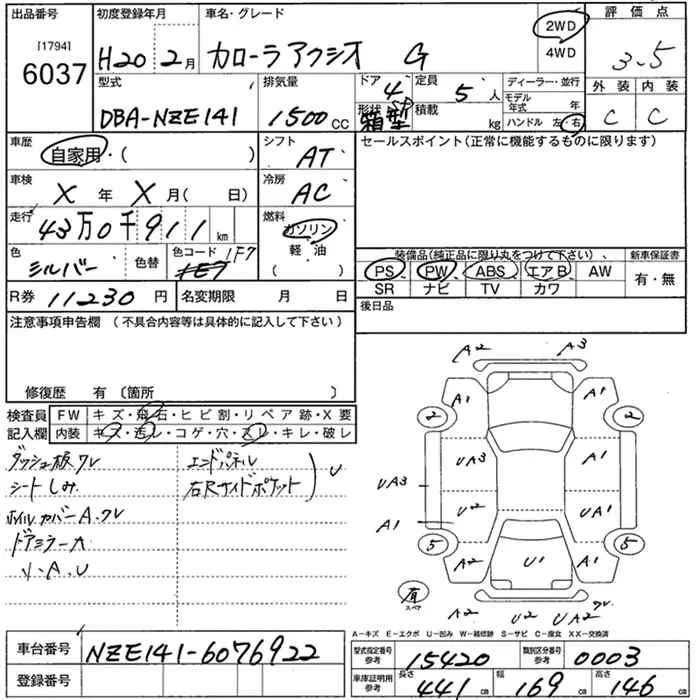 出品番号 初度登録年月 車名・グレード 評価点
[1794]
6037
H20 2月 カローラアクシオ G 2WD 3.5
4WD
型式 排気量 ドア 定員 ディーラー・並行 外装 内装
4 5人 モデル年式 年
DBA-NZE141 1500cc 形状 箱型 積載 kg ハンドル 左・右 C C
車歴 自家用・( ) シフト AT セールスポイント(正常に機能するものに限ります)
車検 X年 X月( 日) 冷房 AC
走行 43万0千911km 燃料 ガソリン
軽・油
( )
色 シルバー 色替 色コード 1F7
装備品(純正品に限り丸をつけて下さい) 新車保証書
PS PW ABS エアB AW 有・無
SR ナビ TV カワ
R券 11230円 名変期限 月 日 後日品
注意事項申告欄 (不具合内容等は具体的に記入して下さい)
修復歴 有 〔箇所 〕
検査員 FW キズ・飛石・ヒビ割・リペア跡・X要
記入欄 内装 キズ・汚レ・コゲ・穴・スレ・キレ・破レ
ダッシュ板ワレ エンドパネル U
シートしみ 右Rサイドポケット
ホイルカバーA.ワレ
ドアミラー
A.U
A2 A3
A1 A1
2 2
UA3 A1
UA3
U2 UA1
A1
5 5
A2 U1 A1
有
スペア
A2 U2 UA2 ワレ
A-キズ E-エクボ U-凹み W-補修跡 S-サビ C-腐食 XX-交換済
車台番号 NZE141-6076922
登録番号
型式指定番号 参考 15420 類別区分番号 参考 0003
車庫証明用 参考 長さ 441cm 幅 169cm 高さ 146cm